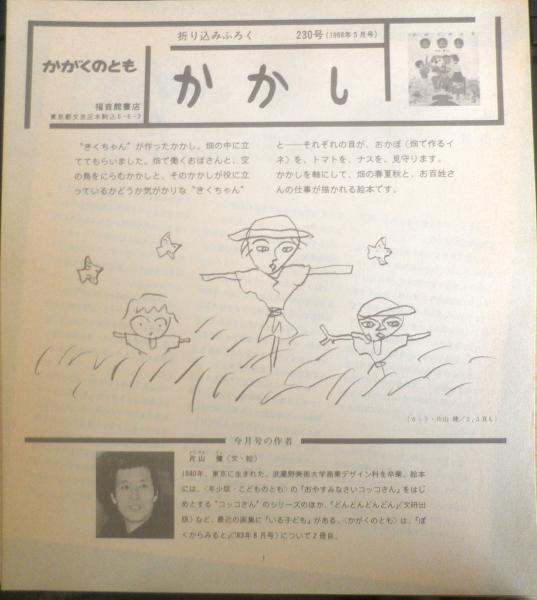 折り込みふろく 230号(1988年5月号)
かがくのとも
かかし
福音館書店
東京都文京区本駒込6-6-3
“きくちゃん”が作ったかかし。畑の中に立
ててもらいました。畑で働くおばさんと、空
の鳥をにらむかかしと、そのかかしが役に立
っているかどうか気がかりな“きくちゃん”
と——それぞれの目が、おかぼ(畑で作るイ
ネ)を、トマトを、ナスを、見守ります。
かかしを軸にして、畑の春夏秋と、お百姓さ
んの仕事が描かれる絵本です。
(カット・片山 健/2,3頁も)
今月号の作者
片山 健(文・絵)
1940年、東京に生まれた。武蔵野美術大学商業デザイン科を卒業。絵本
には、〈年少版・こどものとも〉の「おやすみなさいコッコさん」をはじ
めとする“コッコさん”のシリーズのほか、「どんどんどんどん」(文研出
版)など、最近の画集に「いる子ども」がある。〈かがくのとも〉は、「ぼ
くからみると」('83年8月号)について2冊目。
1